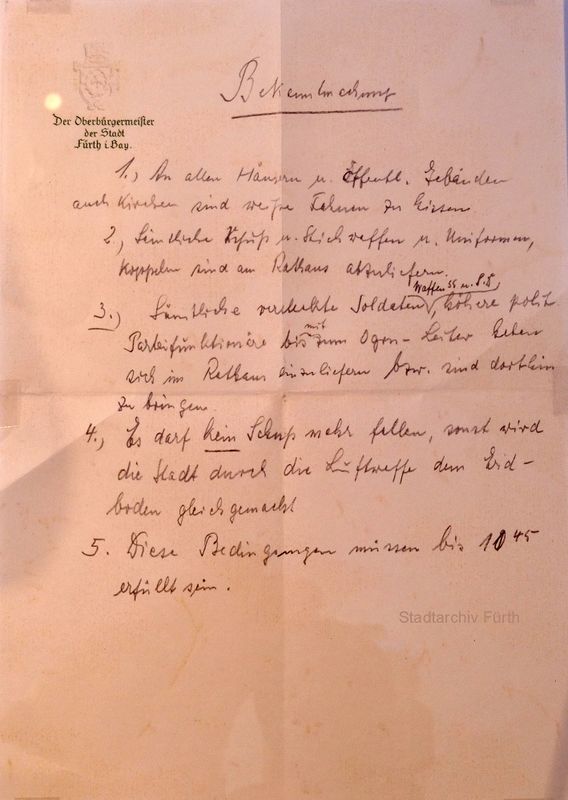 Der Oberbürgermeister
der Stadt
Fürth i. Bay.
Bekanntmachung
1., An allen Häusern u. öffentl. Gebäuden
auch Kirchen sind weiße Fahnen zu hissen
2., Sämtliche Schuß u. Stichwaffen u. Uniformen,
Koppeln sind am Rathaus abzuliefern.
Waffen SS u. S.S.
3.) Sämtliche versteckte Soldaten, höhere polit
Parteifunktionäre bis mit zum Ogru-Leiter haben
sich im Rathaus einzuliefern bzw. sind dorthin
zu bringen.
4., Es darf kein Schuß mehr fallen, sonst wird
die Stadt durch die Luftwaffe dem Erd-
boden gleichgemacht
5. Diese Bedingungen müssen bis 10 45
erfüllt sein.
Stadtarchiv Fürth